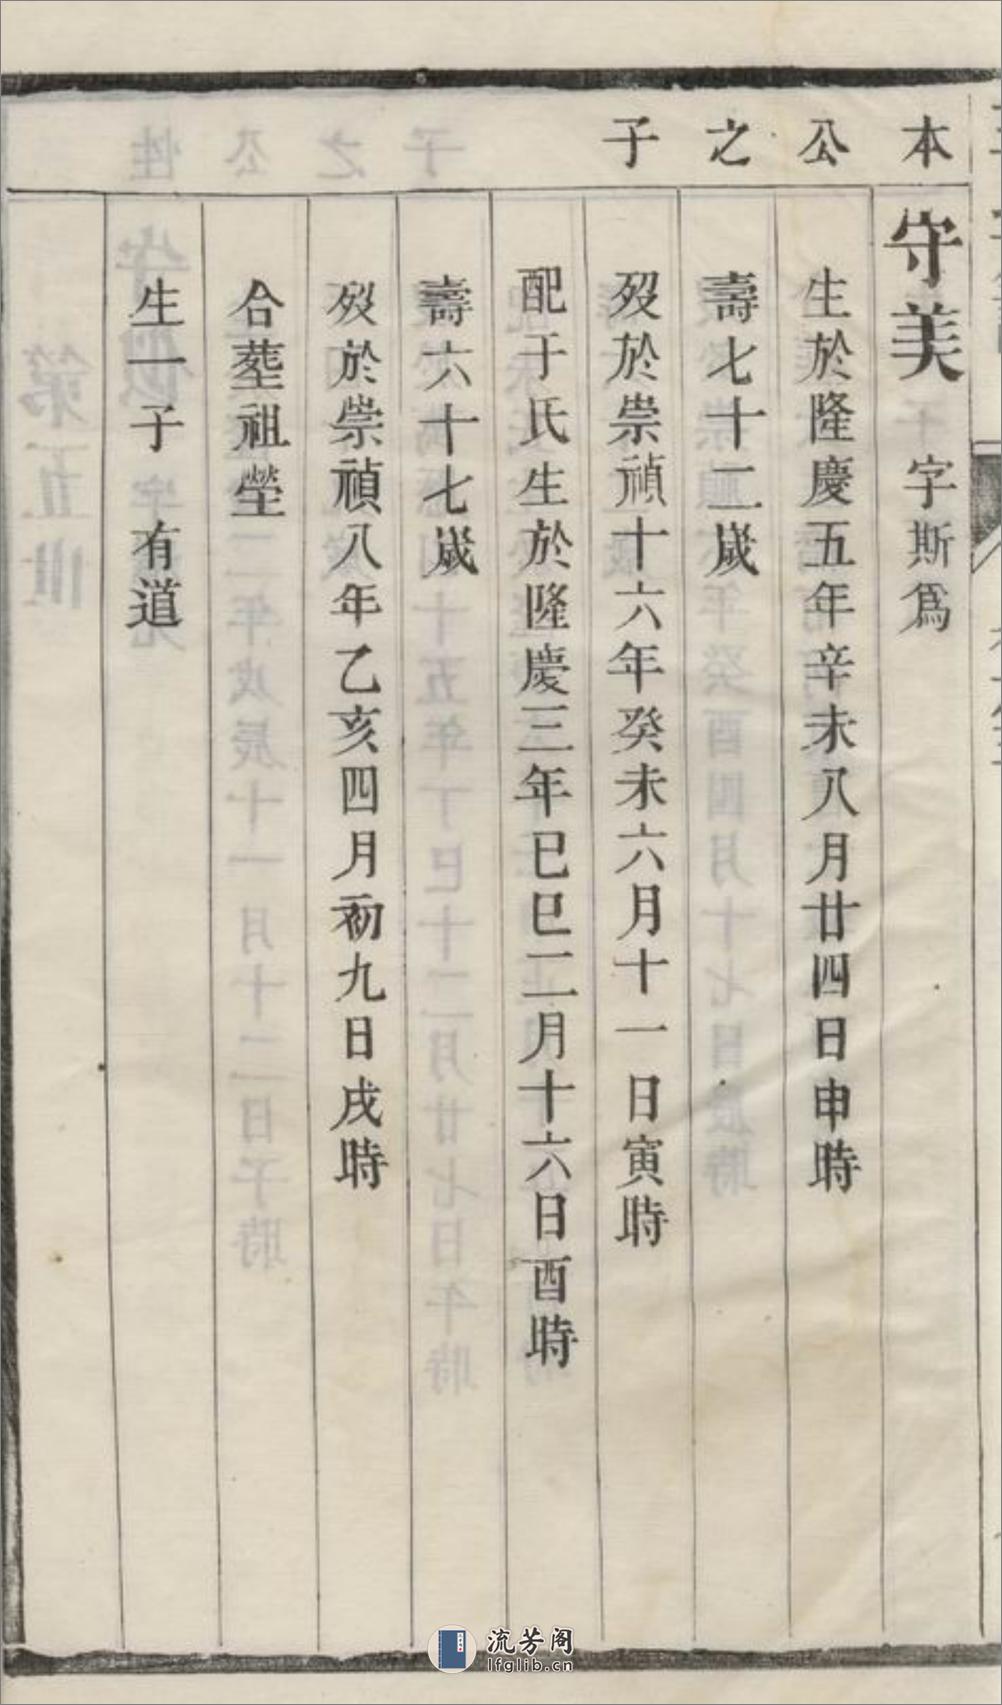 本公之子
守美 字斯爲
生於隆慶五年辛未八月廿四日申時
壽七十二歲
歿於崇禎十六年癸未六月十一日寅時
配于氏生於隆慶三年巳巳二月十六日酉時
壽六十七歲
歿於崇禎八年乙亥四月初九日戌時
合塟祖塋
生一子 有道
流芳阁
lfglib.cn